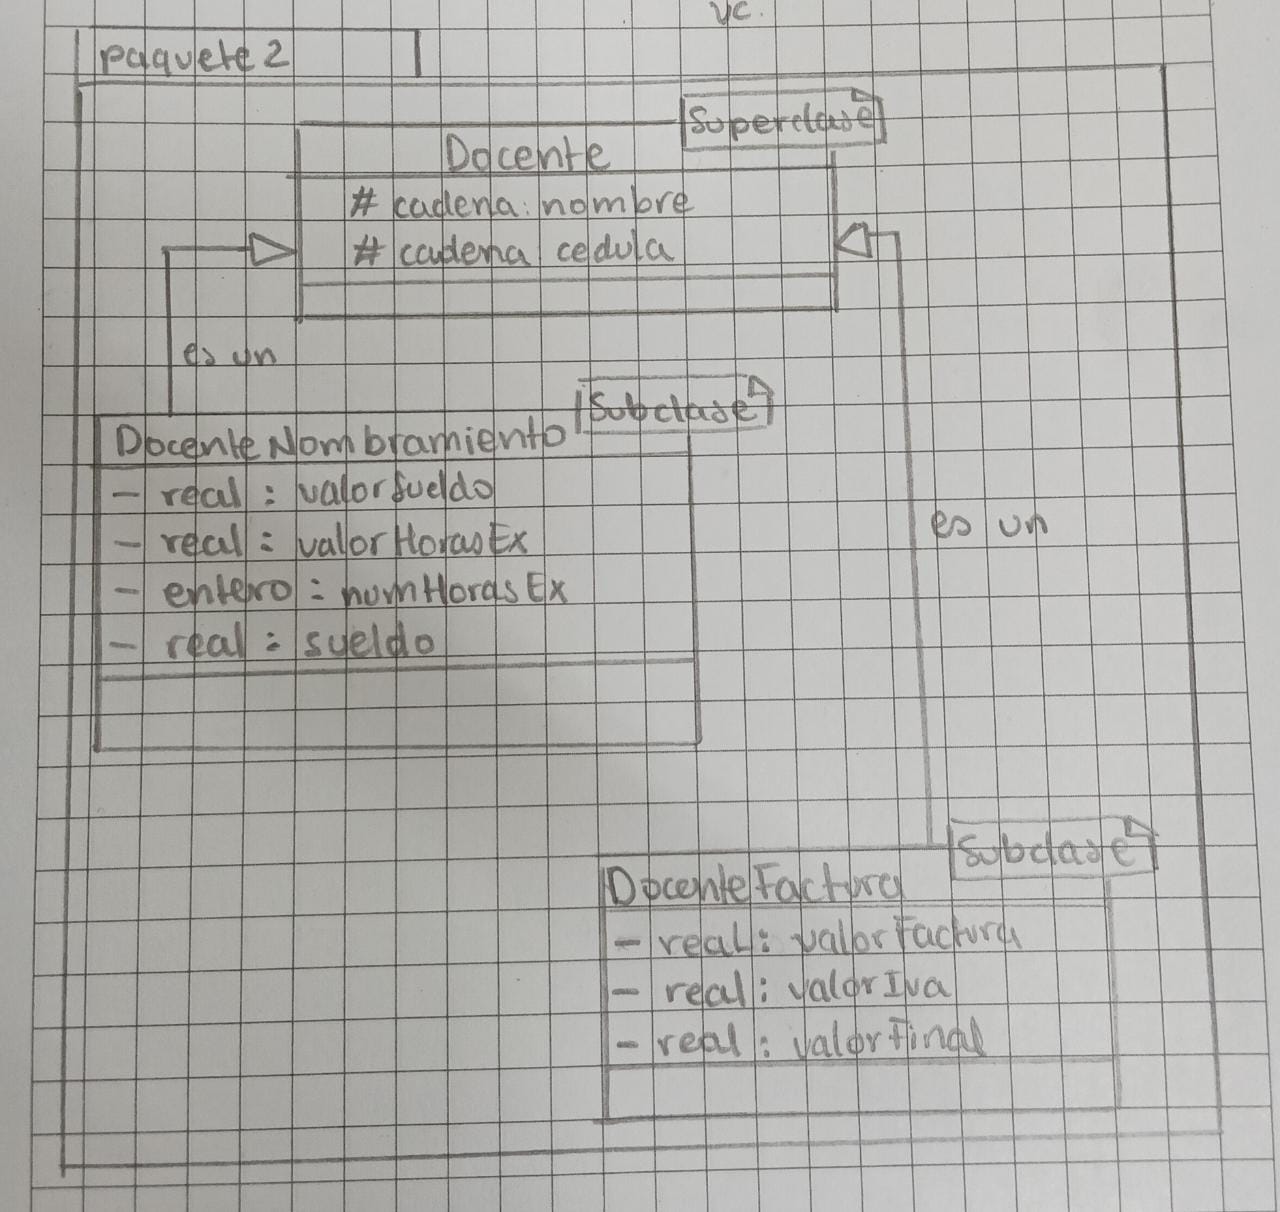 yc.
paquete 2
Superclase
Docente
# cadena: nombre
# cadena cedula
es un
Subclase
DocenteNombramiento
- real : valorSueldo
- real : valorHorasEx
- entero : numHorasEx
- real : sueldo
es un
Subclase
DocenteFactura
- real : valorFactura
- real : valorIva
- real : valorFinal